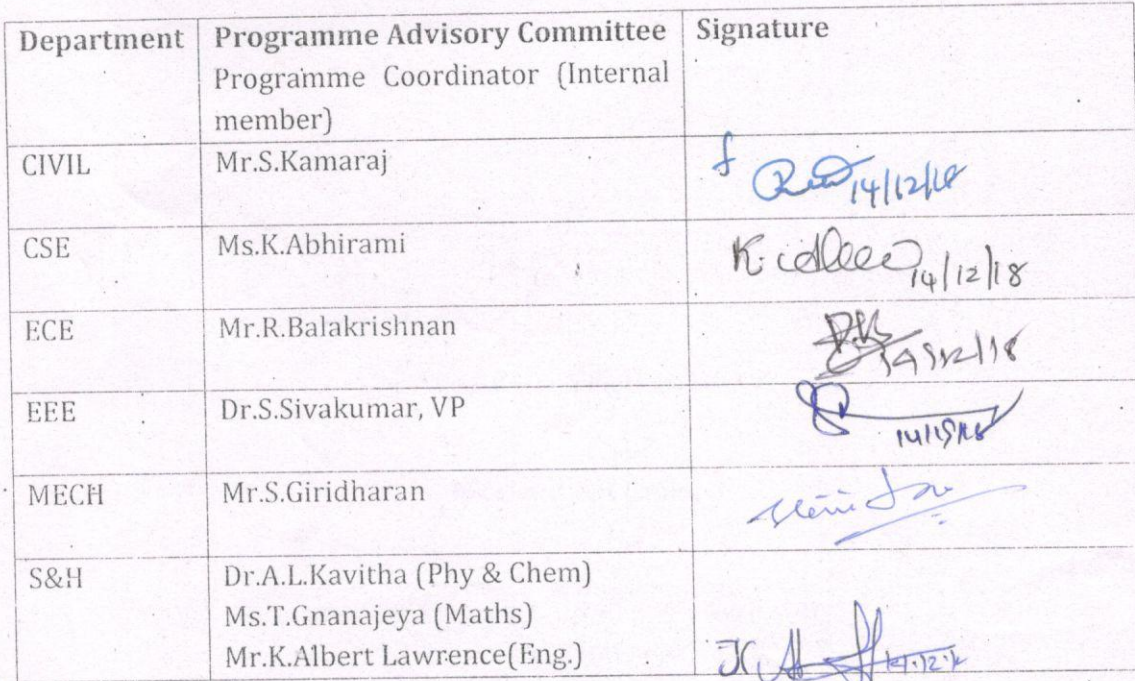 Department Programme Advisory Committee Signature
Programme Coordinator (Internal
member)
CIVIL Mr.S.Kamaraj
14/12/18
CSE Ms.K.Abhirami
K. 14/12/18
ECE Mr.R.Balakrishnan
14/12/18
EEE Dr.S.Sivakumar, VP
MECH Mr.S.Giridharan
S&H Dr.A.L.Kavitha (Phy & Chem)
Ms.T.Gnanajeya (Maths)
Mr.K.Albert Lawrence(Eng.)